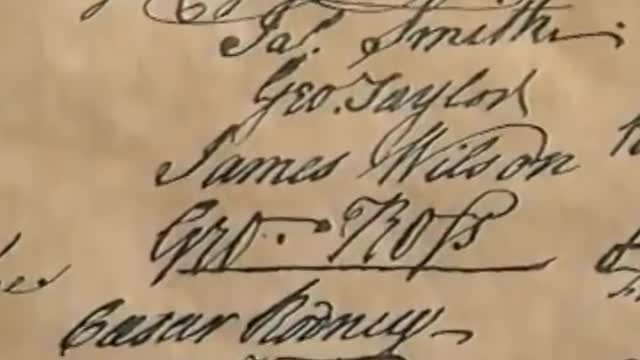 Jas. Smith
Geo. Taylor
James Wilson
Geo. Ross
Caesar Rodney